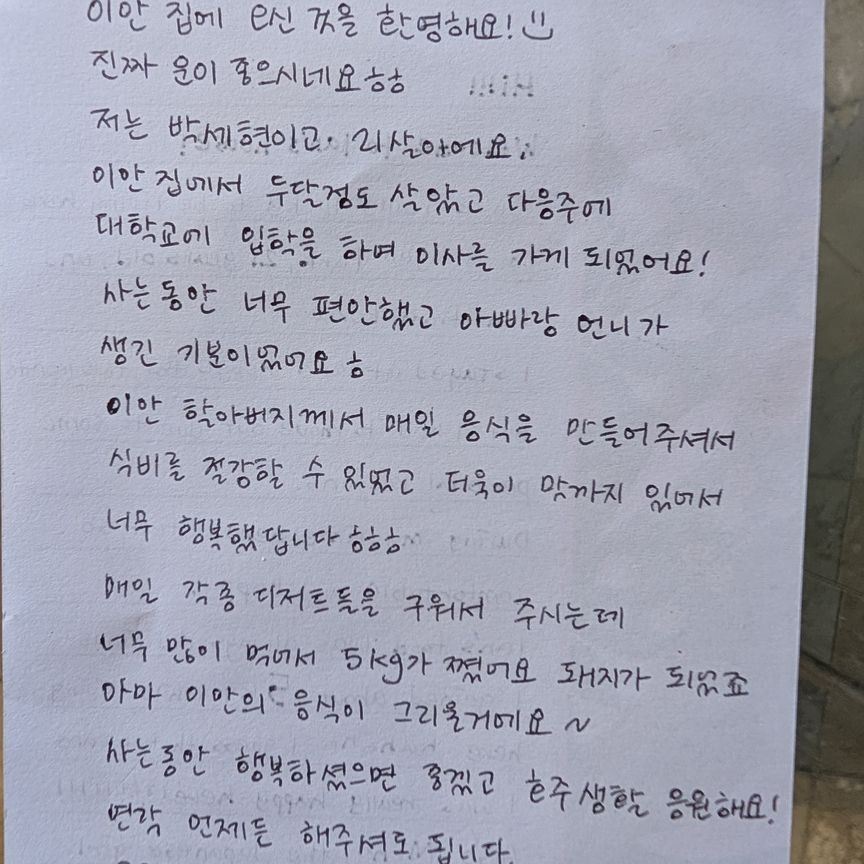 이안 집에 오신 것을 환영해요! :)
진짜 운이 좋으시네요ㅎㅎ
저는 박세현이고. 21살이에요.
이안 집에서 두달정도 살았고 다음주에
대학교에 입학을 하며 이사를 가게 되었어요!
사는동안 너무 편안했고 아빠랑 언니가
생긴 기분이었어요 ㅎ
이안 할아버지께서 매일 음식을 만들어주셔서
식비를 절감할 수 있었고 더욱이 맛까지 있어서
너무 행복했답니다 ㅎㅎㅎ
매일 각종 디저트들을 구워서 주시는데
너무 많이 먹어서 5kg가 쪘어요 돼지가 되었죠
아마 이안의 음식이 그리울거에요 ~
사는동안 행복하셨으면 좋겠고 호주생활 응원해요!
연락 언제든 해주셔도 됩니다.